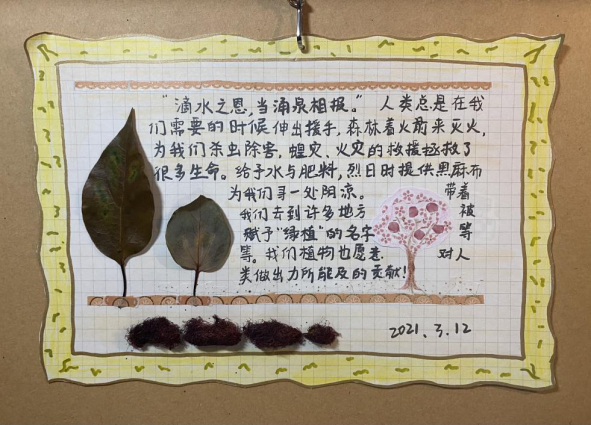 “滴水之恩,当涌泉相报。” 人类总是在我
们需要的时候伸出援手,森林着火前来灭火,
为我们杀虫除害,蝗灾、火灾的救援拯救了
很多生命。给予水与肥料,烈日时提供黑麻布
为我们寻一处阴凉。 带着
我们去到许多地方 被
赋予“绿植”的名字 等
等。我们植物也愿意 对人
类做出力所能及的贡献!
2021.3.12